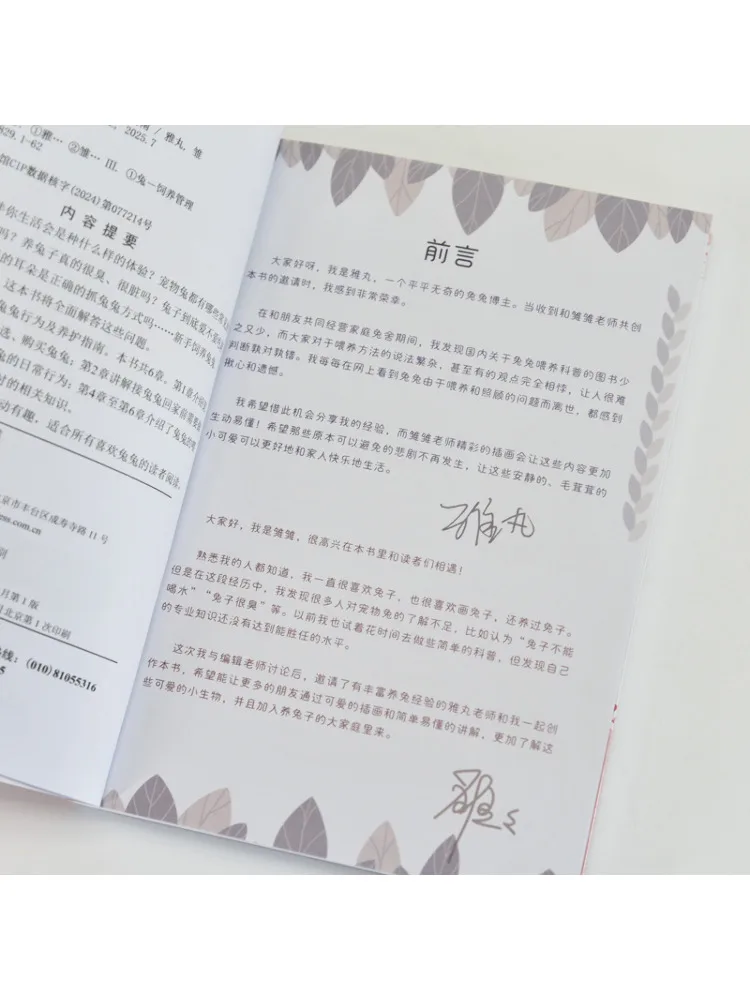 雅丸，雏
2025.7
①雅… ②雏… Ⅲ. ①兔—饲养管理
829.1-62
馆CIP数据核字(2024)第077214号
内容提要
你生活会是种什么样的体验？宠物兔都有哪些
吗？养兔子真的很臭、很脏吗？兔子到底
的耳朵是正确的抓兔兔方式吗……新手饲养兔兔
这本书将全面解答这些问题。
兔兔行为及养护指南。本书共6章，第1章介绍
选、购买兔兔；第2章讲解接兔兔回家前需要
兔的日常行为；第4章至第6章介绍了兔兔的
时的相关知识。
动有趣，适合所有喜欢兔兔的读者阅读。
京市丰台区成寿寺路11号
ss.com.cn
刷
月第1版
北京第1次印刷
热线：(010)81055316
5
前言
大家好呀，我是雅丸，一个平平无奇的兔兔博主。当收到和雏雏老师共创
本书的邀请时，我感到非常荣幸。
在和朋友共同经营家庭兔舍期间，我发现国内关于兔兔喂养科普的图书少
之又少，而大家对于喂养方法的说法繁杂，甚至有的观点完全相悖，让人很难
判断孰对孰错。我每每在网上看到兔兔由于喂养和照顾的问题而离世，都感到
揪心和遗憾。
我希望借此机会分享我的经验，而雏雏老师精彩的插画会让这些内容更加
生动易懂！希望那些原本可以避免的悲剧不再发生，让这些安静的、毛茸茸的
小可爱可以更好地和家人快乐地生活。
雅丸
大家好，我是雏雏，很高兴在本书里和读者们相遇！
熟悉我的人都知道，我一直很喜欢兔子，也很喜欢画兔子，还养过兔子。
但是在这段经历中，我发现很多人对宠物兔的了解不足，比如认为“兔子不能
喝水”“兔子很臭”等。以前我也试着花时间去做些简单的科普，但发现自己
的专业知识还没有达到能胜任的水平。
这次我与编辑老师讨论后，邀请了有丰富养兔经验的雅丸老师和我一起创
作本书，希望能让更多的朋友通过可爱的插画和简单易懂的讲解，更加了解这
些可爱的小生物，并且加入养兔子的大家庭里来。